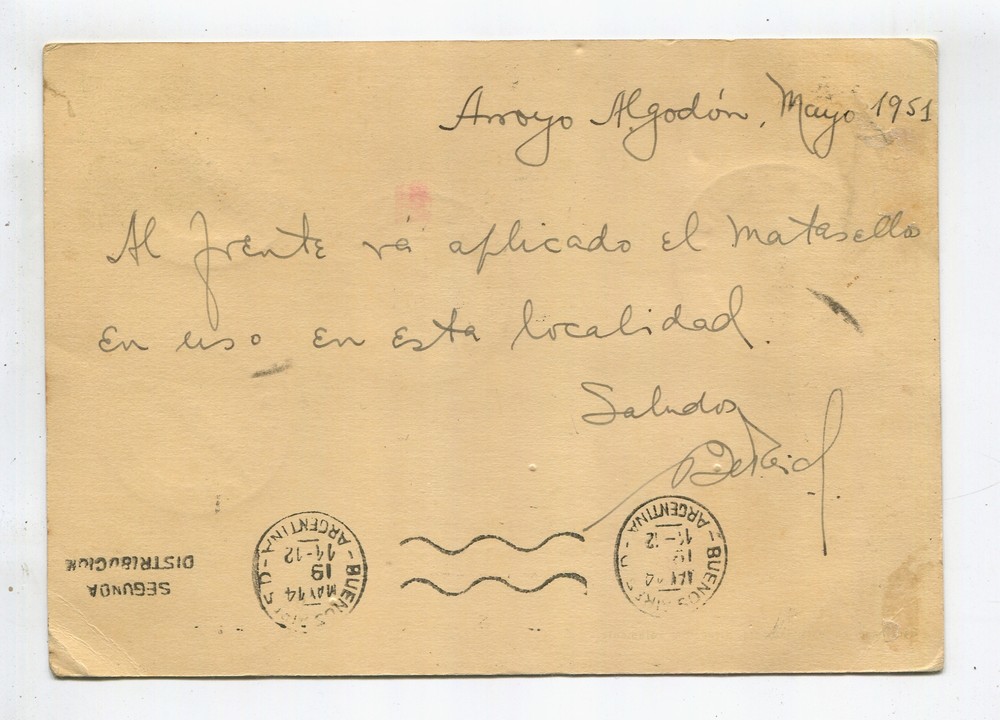 Arroyo Algodón, Mayo 1951
Al frente vá aplicado el matasello
en uso en esta localidad.
Saludos
SEGUNDA
DISTRIBUCION
BUENOS AIRES - D - ARGENTINA -
MAY 14
19
11-12
BUENOS AIRES - D - ARGENTINA -
MAY 14
19
11-12